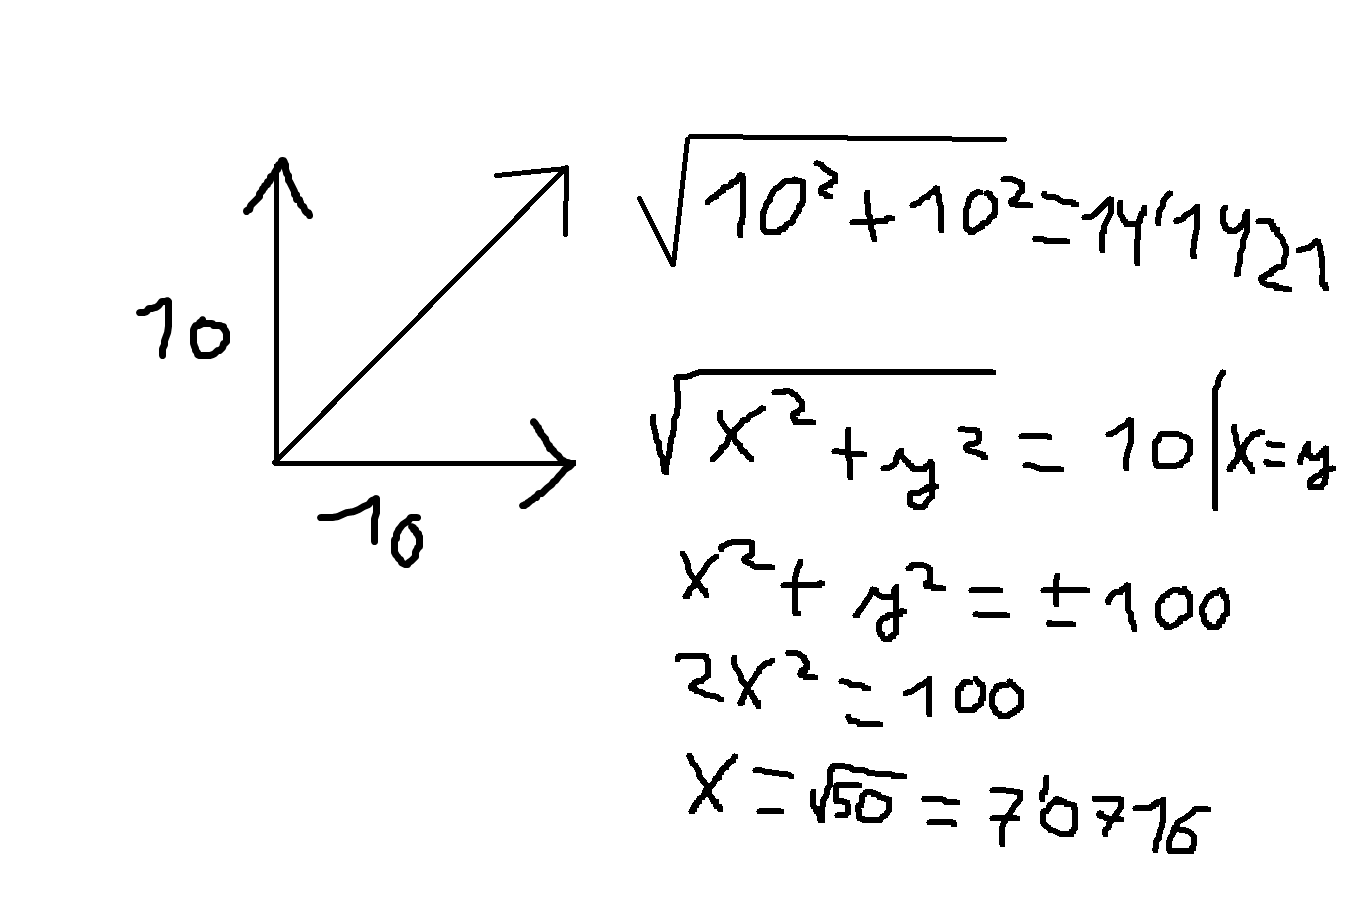 10
10
√10²+10² = 14'1421
√x²+y² = 10 | x=y
x²+y² = ±100
2x² = 100
x = √50 = 7'0716